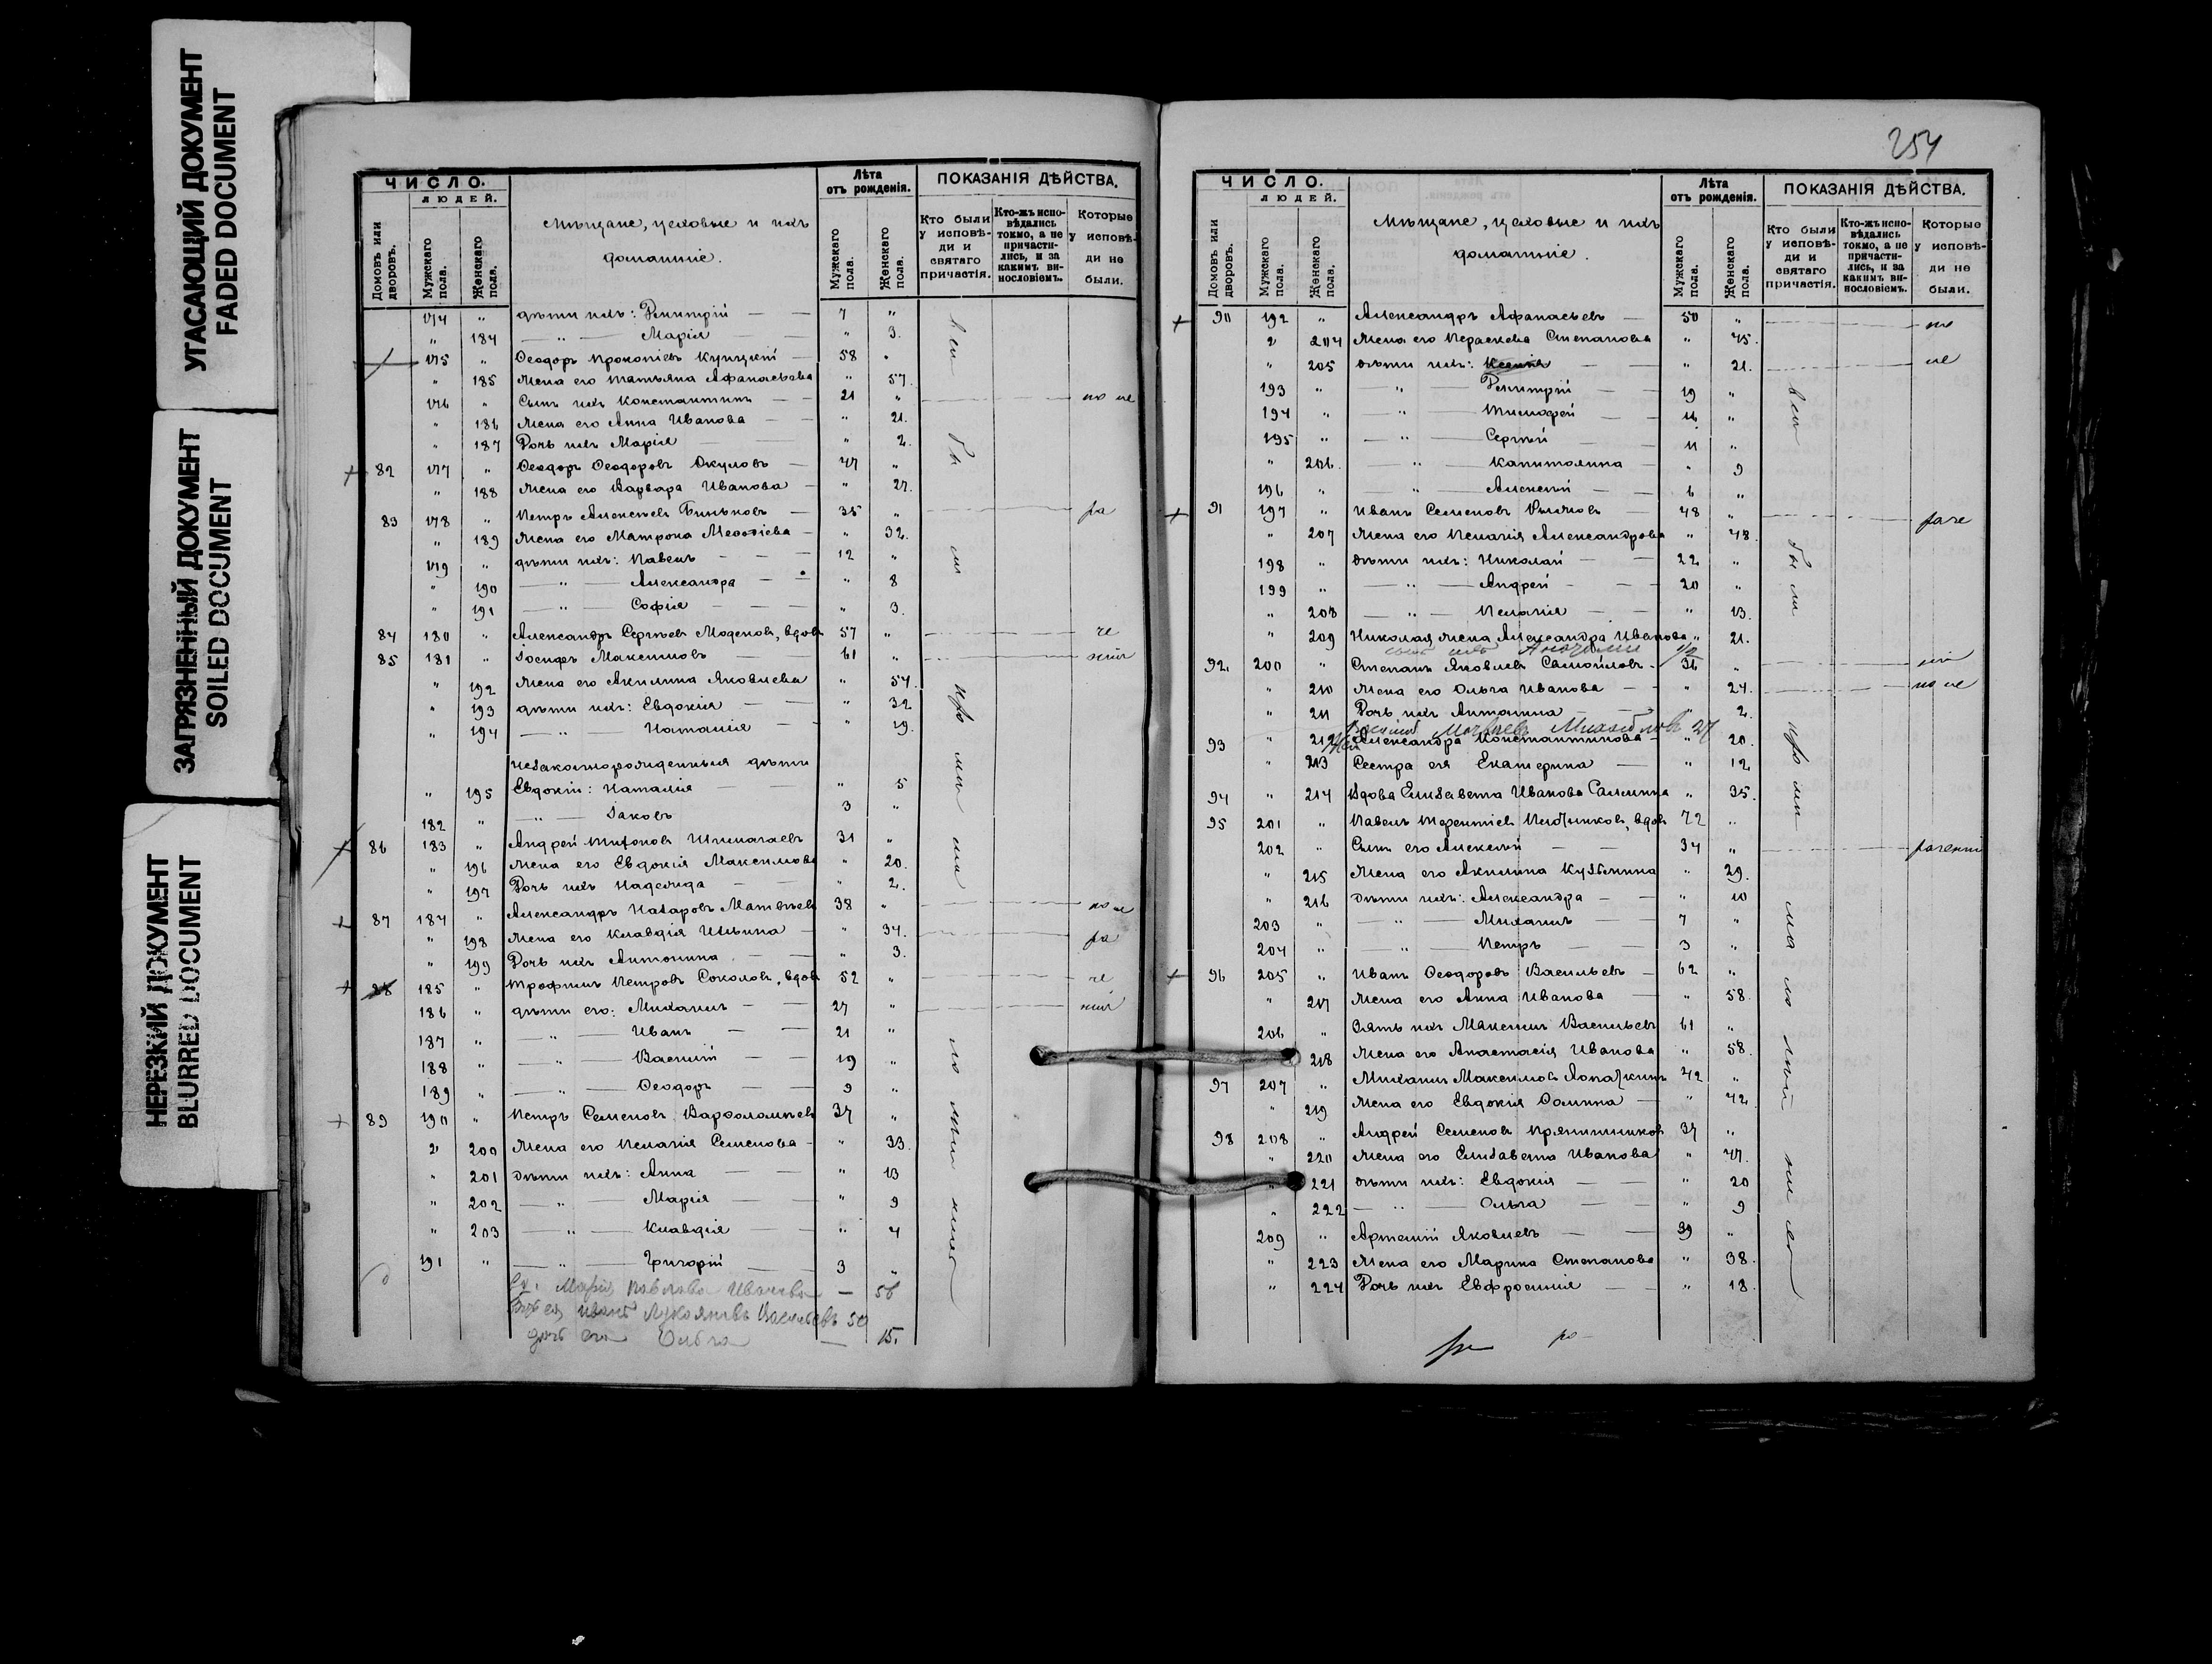 УГАСАЮЩИЙ ДОКУМЕНТ
FADED DOCUMENT
ЗАГРЯЗНЕННЫЙ ДОКУМЕНТ
SOILED DOCUMENT
НЕРЕЗКИЙ ДОКУМЕНТ
BLURRED DOCUMENT
ЧИСЛО.
ЛЮДЕЙ.
Домовъ или дворовъ.
Мужскаго пола.
Женскаго пола.
Мѣщане, цеховые и ихъ
домашніе.
Лѣта отъ рожденія.
Мужскаго пола.
Женскаго пола.
ПОКАЗАНІЯ ДѢЙСТВА.
Кто были у исповѣди и святаго причастія.
Кто-жъ исповѣдались токмо, а не причастились, и за какимъ винословіемъ.
Которые у исповѣди не были.
174 " дѣти ихъ: Димитрій 7 "
" 184 " Марія " 3.
175 " Ѳеодоръ Прокопіевъ Купуцкій 58 "
" 185 Жена его Татьяна Афанасьева " 57.
176 " Сынъ ихъ Константинъ 21 "
" 186 Жена его Анна Иванова " 21.
" 187 Дочь ихъ Марія " 2.
82 177 " Ѳеодоръ Ѳеодоровъ Окуловъ 47 "
" 188 Жена его Варвара Иванова " 27.
83 178 " Петръ Алексѣевъ 35 "
" 189 Жена его Матрона Меѳодіева " 32.
179 " дѣти ихъ: Павелъ 12 "
" 190 " Александра " 8
" 191 " Софія " 3.
84 180 " Александръ Сергѣевъ Моденовъ, вдовъ 57 "
85 181 " Іосифъ Максимовъ 61 "
" 192 Жена его Акилина Яковлева " 54.
" 193 дѣти ихъ: Евдокія " 32
" 194 " Наталія " 19.
незаконнорожденныя дѣти
" 195 Евдокіи: Наталія " 5
182 " " Іаковъ 3 "
86 183 " Андрей Тихоновъ 31 "
" 196 Жена его Евдокія Максимова " 20.
" 197 Дочь ихъ Надежда " 2.
87 184 " Александръ Назаровъ Матвѣевъ 38 "
" 198 Жена его Клавдія Ильина " 34.
" 199 Дочь ихъ Антонина " 3.
88 185 " Трофимъ Петровъ Соколовъ, вдовъ 52 "
186 " дѣти его: Михаилъ 27 "
187 " " Иванъ 21 "
188 " " Василій 19 "
189 " " Ѳеодоръ 9 "
89 190 " Петръ Семеновъ Варѳоломѣевъ 37 "
" 200 Жена его Пелагія Семенова " 33.
" 201 дѣти ихъ: Анна " 13
" 202 " Марія " 9
" 203 " Клавдія " 4
191 " " Григорій 3 "
Марія Павлова Иванова 56
Иванъ Лукояновъ Васильевъ 50
дочь его Ольга 15.
254
ЧИСЛО.
ЛЮДЕЙ.
Домовъ или дворовъ.
Мужскаго пола.
Женскаго пола.
Мѣщане, цеховые и ихъ
домашніе.
Лѣта отъ рожденія.
Мужскаго пола.
Женскаго пола.
ПОКАЗАНІЯ ДѢЙСТВА.
Кто были у исповѣди и святаго причастія.
Кто-жъ исповѣдались токмо, а не причастились, и за какимъ винословіемъ.
Которые у исповѣди не были.
90 192 " Александръ Афанасьевъ 50 "
" 204 Жена его Параскева Степанова " 45.
" 205 дѣти ихъ: Ксенія " 21.
193 " " Димитрій 19 "
194 " " Тимофей 16 "
195 " " Сергѣй 11 "
" 206. " Капитолина " 9
196 " " Алексѣй 6 "
91 197 " Иванъ Семеновъ 48 "
" 207 Жена его Пелагія Александрова " 48.
198 " дѣти ихъ: Николай 22 "
199 " " Андрей 20 "
" 208 " Пелагія " 13.
" 209 Николая жена Александра Иванова " 21.
92 200 " Степанъ Яковлевъ Самойловъ 36 "
" 210 Жена его Ольга Иванова " 24.
" 211 Дочь ихъ Антонина " 2.
93 " 212 Александра Константинова " 20.
" 213 Сестра ея Екатерина " 12
94 " 214 Вдова Елизавета Иванова " 35.
95 201 " Павелъ Терентіевъ вдовъ 72 "
202 " Сынъ его Алексѣй 34 "
" 215 Жена его Акилина Кузьмина " 29.
" 216 дѣти ихъ: Александра " 10
203 " " Михаилъ 7 "
204 " " Петръ 3 "
96 205 " Иванъ Ѳеодоровъ Васильевъ 62 "
" 217 Жена его Анна Иванова " 58.
206 " Зять ихъ Максимъ Васильевъ 61 "
" 218 Жена его Анастасія Иванова " 58.
97 207 " Михаилъ Максимовъ Лопаткинъ 42 "
" 219 Жена его Евдокія " 42
98 208 " Андрей Семеновъ Прянишниковъ 37 "
" 220 Жена его Елизавета Иванова " 47.
" 221 дѣти ихъ: Евдокія " 20
" 222 " Ольга " 9
209 " Артемій Яковлевъ 39 "
" 223 Жена его Марина Степанова " 38.
" 224 Дочь ихъ Евфросинія " 18.